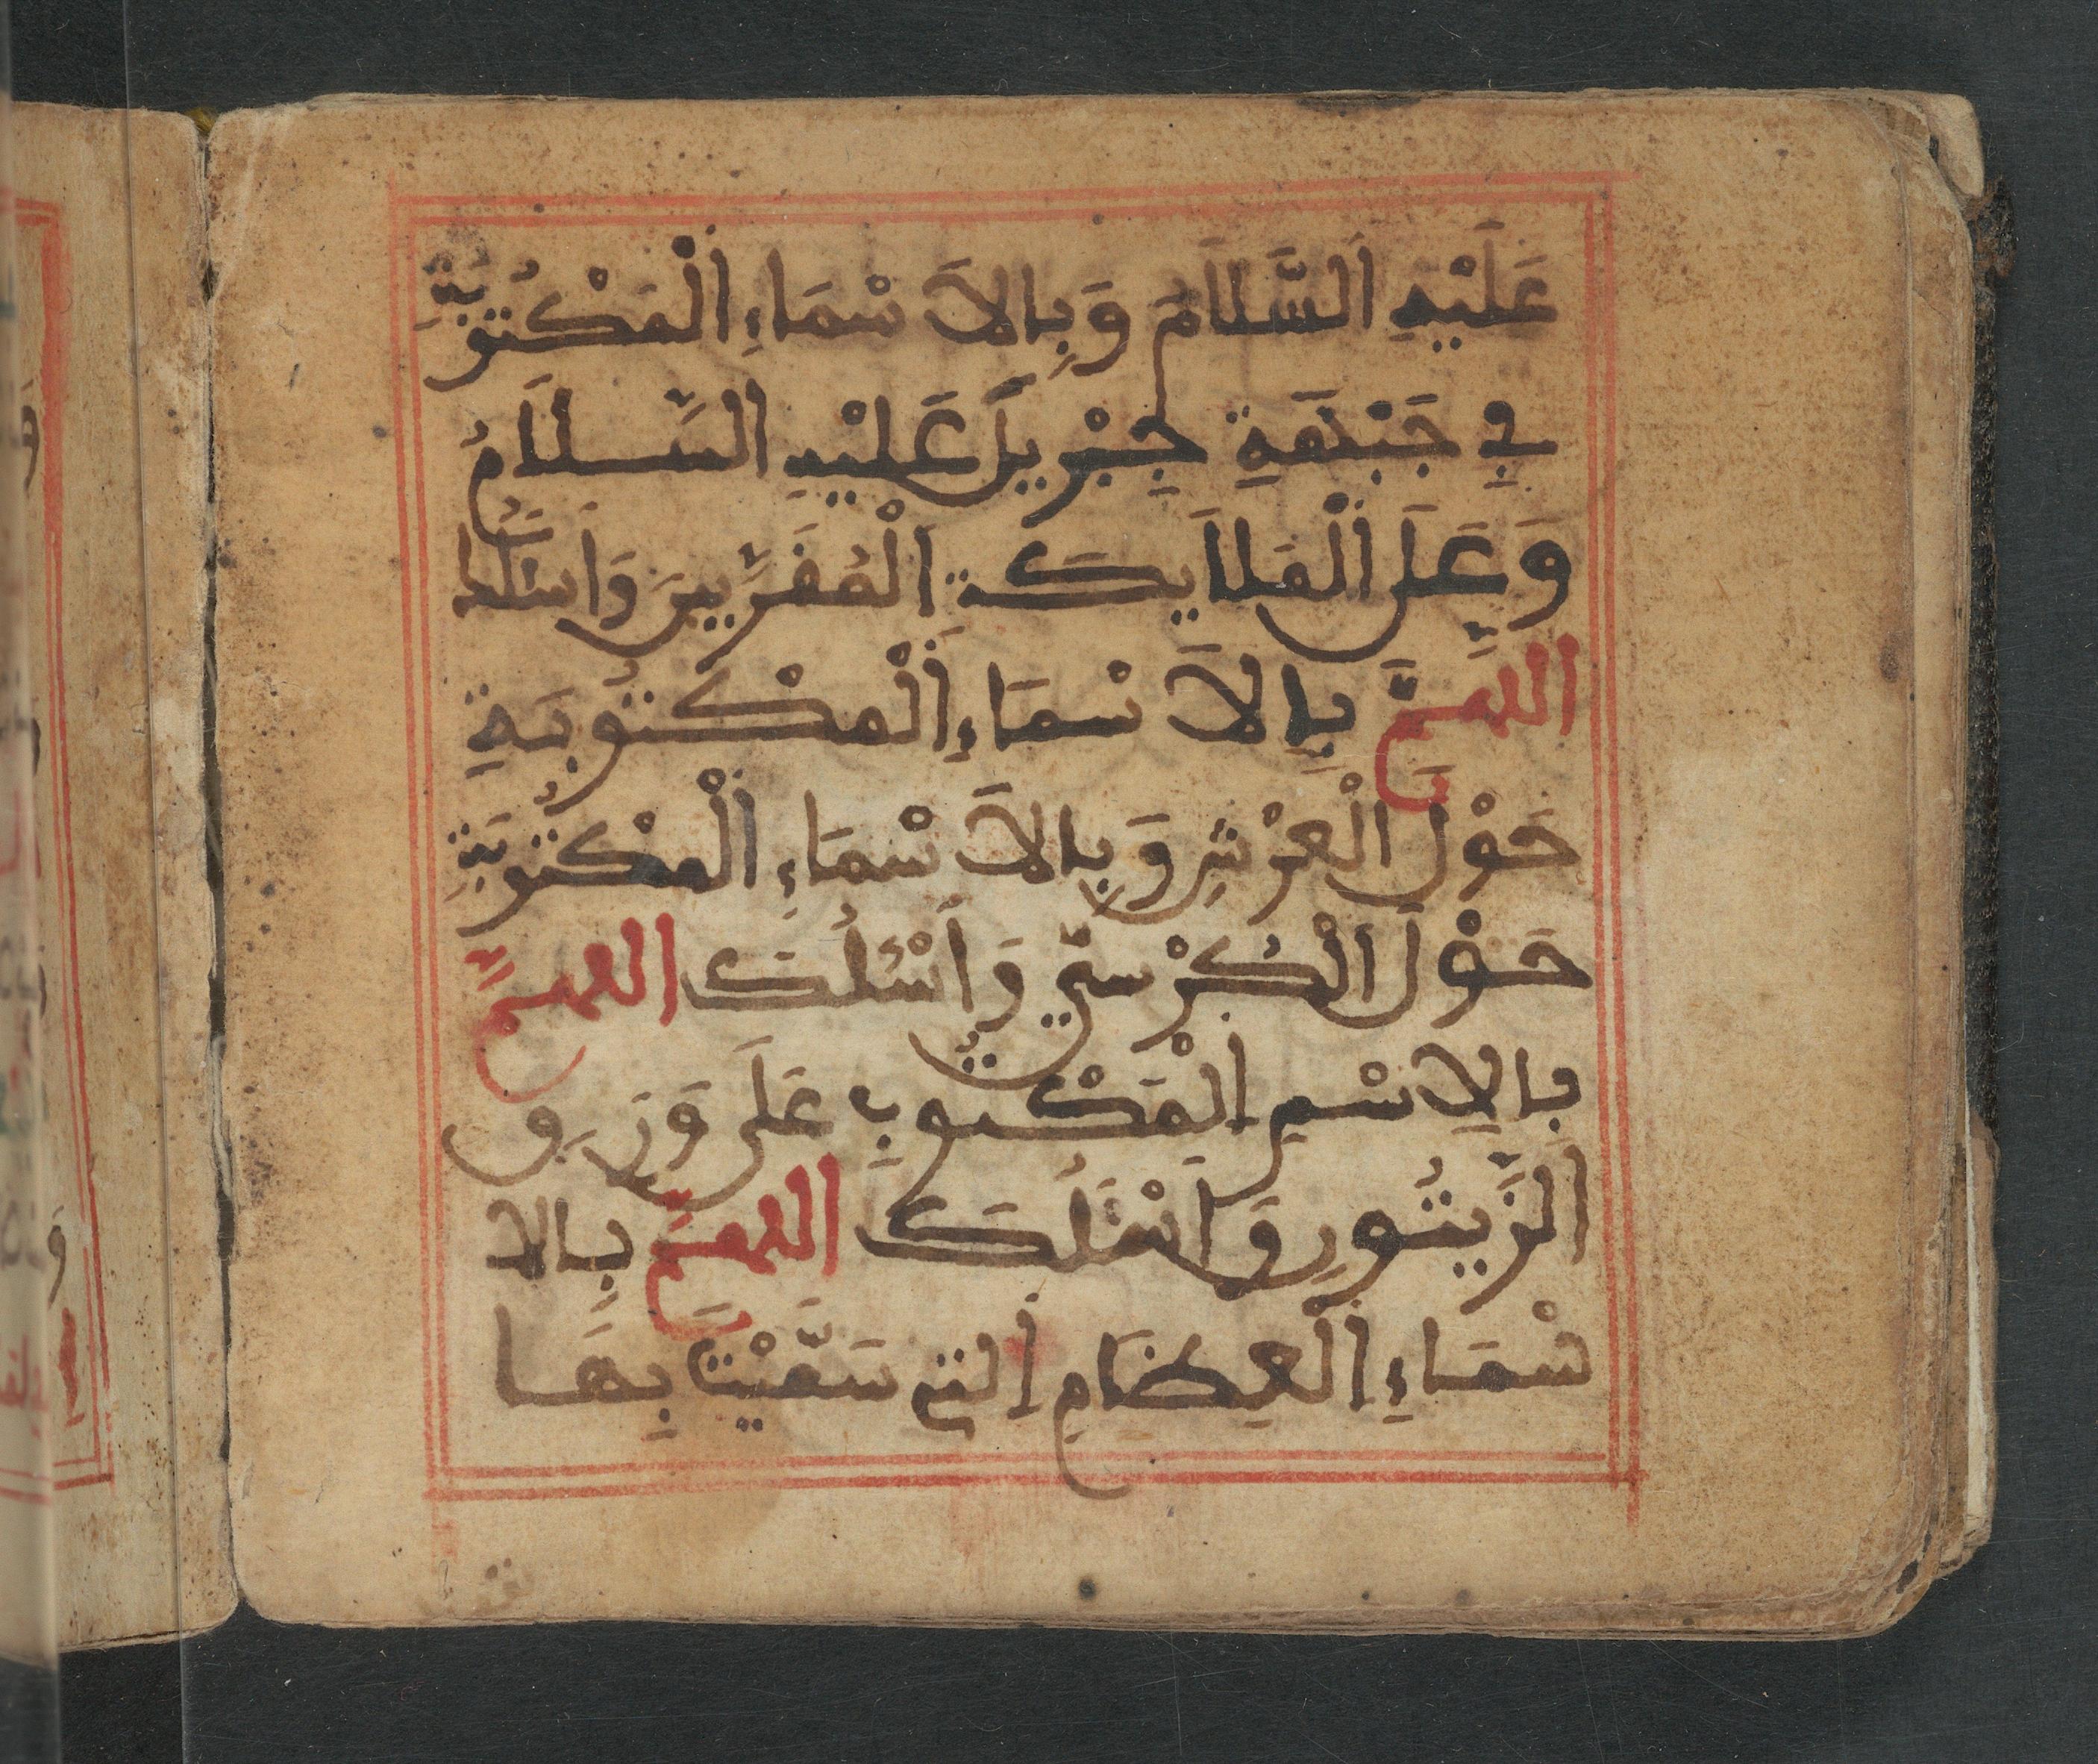 عَلَيْهِ السَّلَامُ وَبِالَاسْمَاءِ الْمَكْتُوبَةِ
فِي جَبْهَةِ جِبْرِيلَ عَلَيْهِ السَّلَامُ
وَعَلَى الْمَلَايِكَةِ الْمُقَرَّبِينَ وَأَسْئَلُكَ
اللهمَّ بِالَاسْمَاءِ الْمَكْتُوبَةِ
حَوْلَ الْعَرْشِ وَبِالَاسْمَاءِ الْمَكْتُوبَةِ
حَوْلَ الْكُرْسِيِّ وَأَسْئَلُكَ اللهمَّ
بِالِاسْمِ الْمَكْتُوبِ عَلَى وَرَقِ
الزَّيْتُونِ وَأَسْئَلُكَ اللهمَّ بِالَا
سْمَاءِ الْعِظَامِ التِي سَمَّيْتَ بِهَا